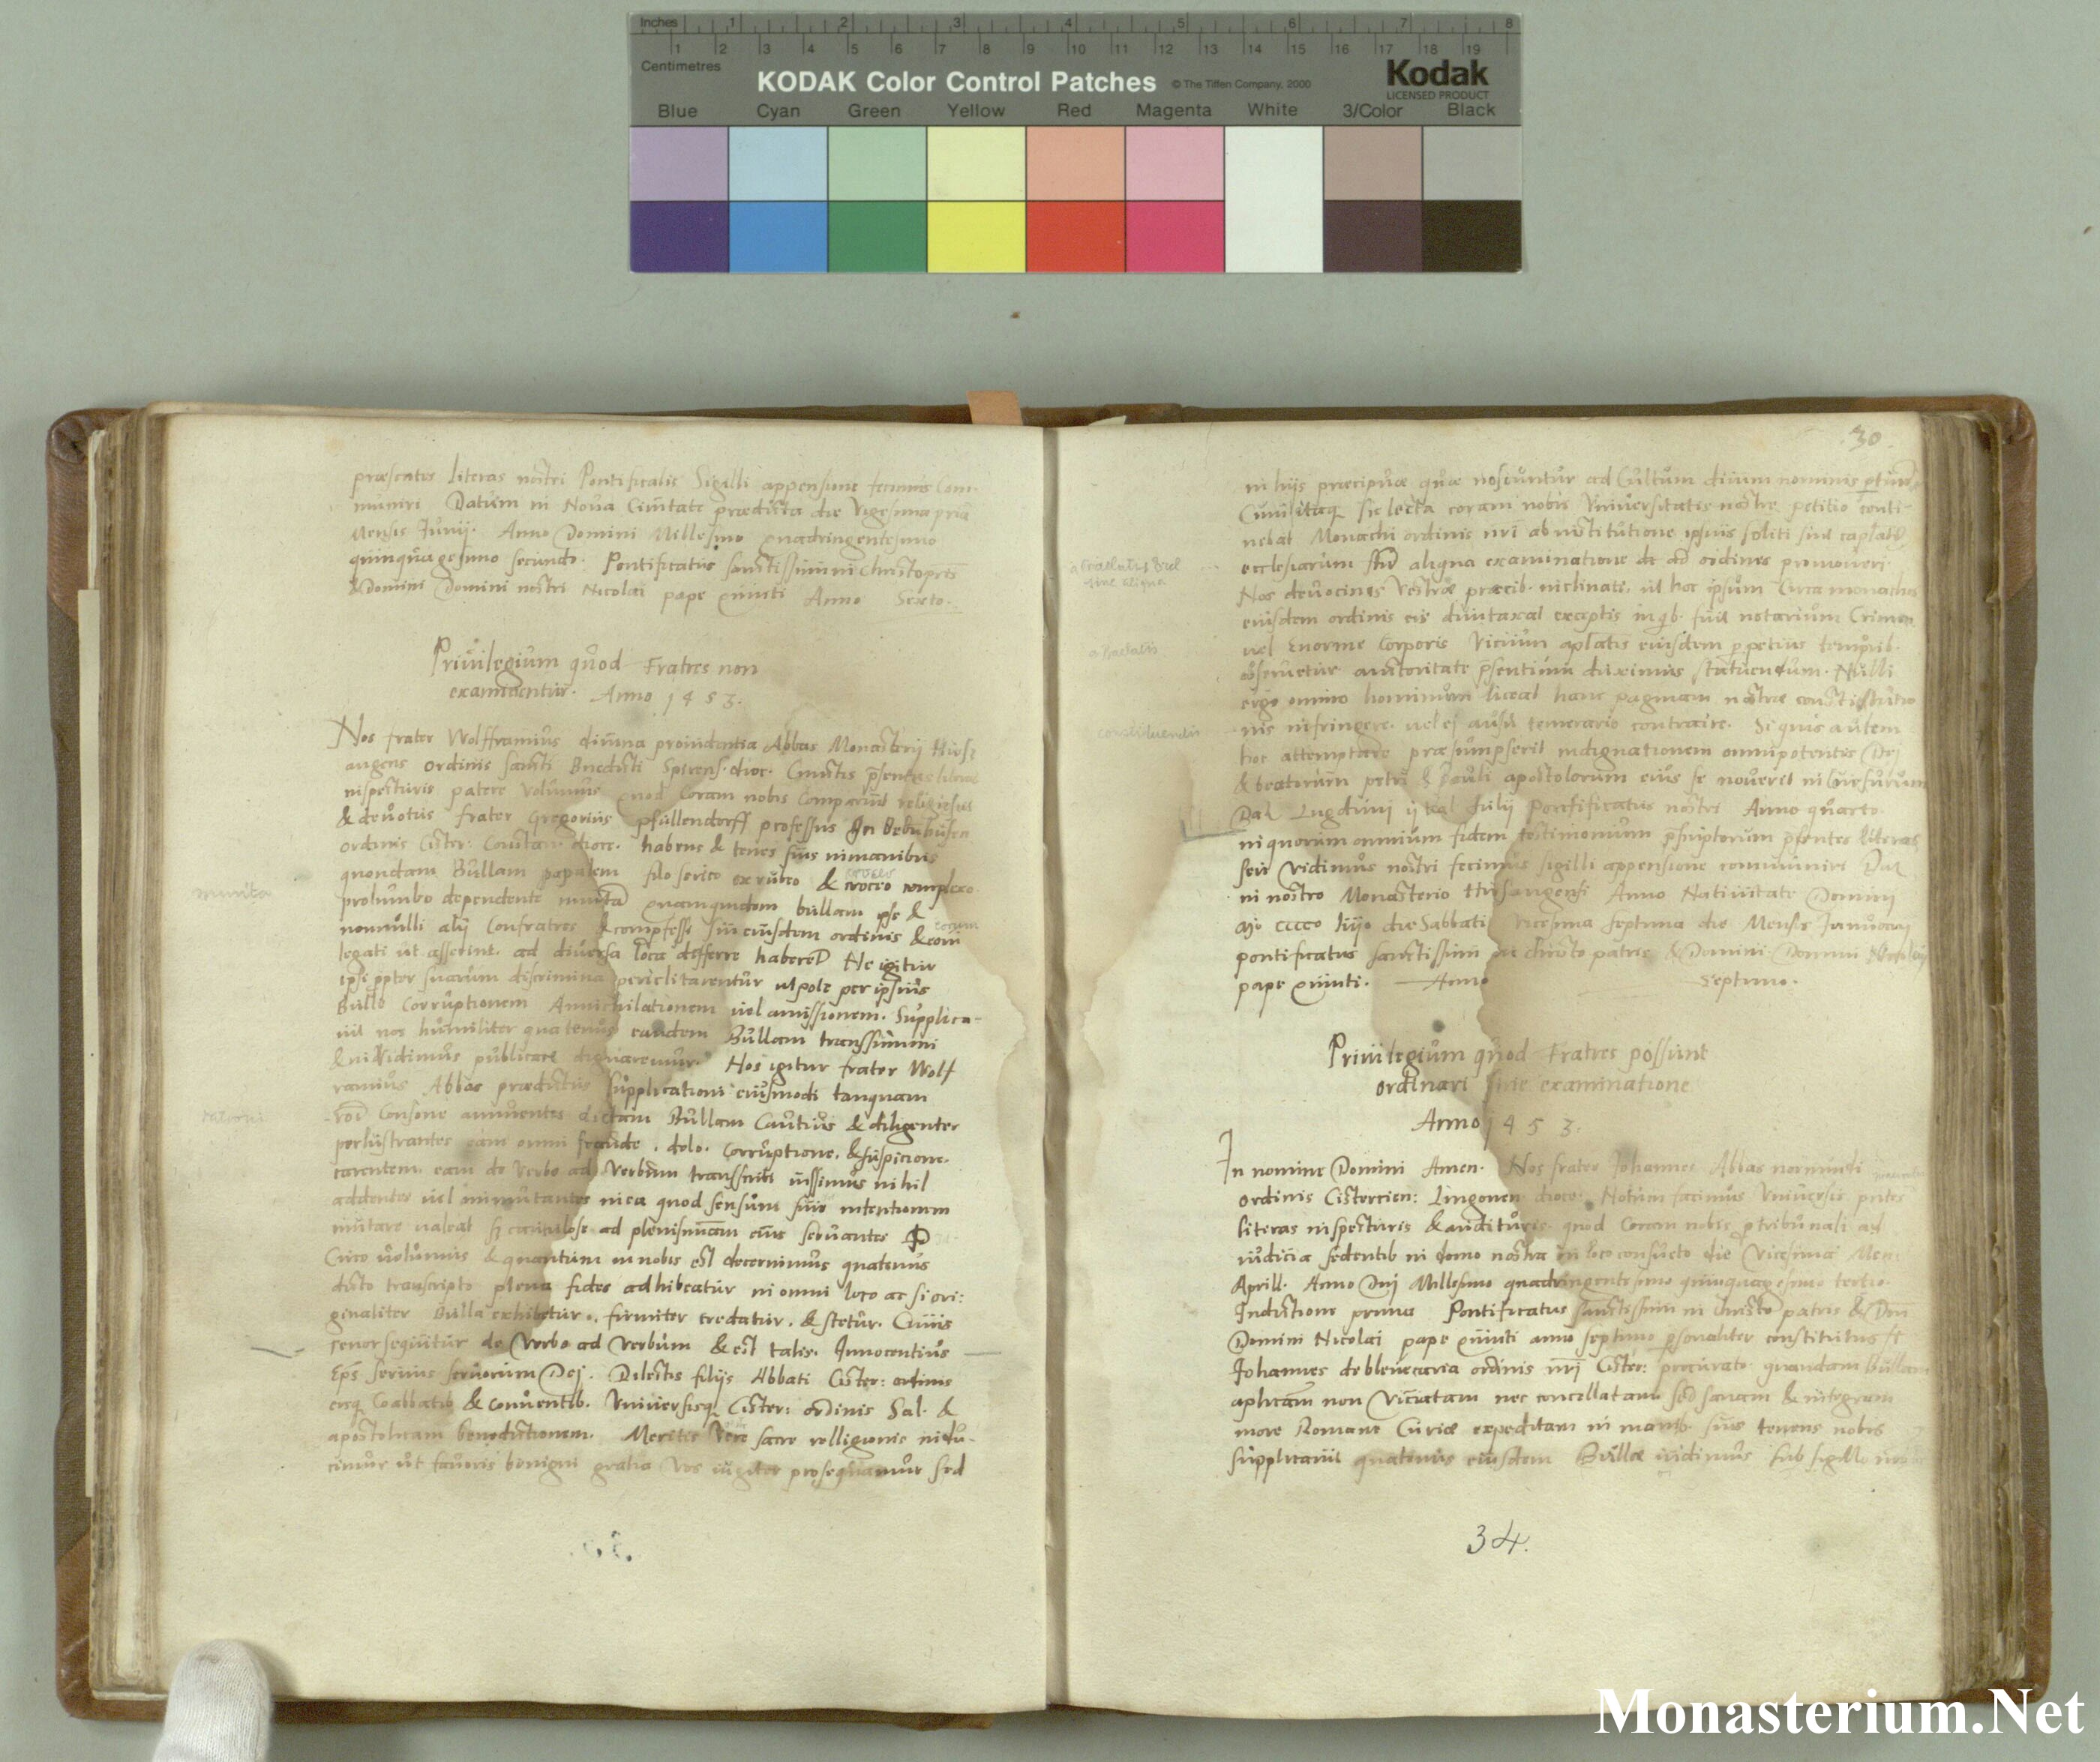 Inches 1 2 3 4 5 6 7 8
1 2 3 4 5 6 7 8 9 10 11 12 13 14 15 16 17 18 19
Centimetres
KODAK Color Control Patches © The Tiffen Company, 2000 Kodak
LICENSED PRODUCT
Blue Cyan Green Yellow Red Magenta White 3/Color Black
præsentes literas nostri Pontificalis Sigilli appensione fecimus Com-
muniri Datum in Noua Ciuitate prædicta die Vigesima
Mensis Junij. Anno Domini Millesimo quadringentesimo
quinquagesimo secundo. Pontificatus sanctissimi in Christo
& Domini Domini nostri Nicolai pape quinti Anno Sexto.
Priuilegium quod Fratres non
examinentur. Anno 1453.
Nos frater Wolfframius diuina prouidentia Abbas Monasterij Hirs
augens ordinis sancti Bnedicti Spirens. dioc. Cunctis
inspecturis patere volumus quod Coram nobis Comparuit religiosus
& deuotus frater Gregorius pfullendorff professus In Bebuhusen
ordinis Cister: Constan: dioce. habens & tenes suis in manibus
quondam Bullam papalem filo serico ex rubeo & croceo complexo
plumbo dependente quamquidem bullam ipse &
munita
nonnulli alij Confratres & compfessi sui eiusdem ordinis &
legati ut asserint. ad diuersa loca defferre Ne igitur
ipse suarum discrimina periclitarentur utpote per ipsius
Bulle Corruptionem Annichilationem uel amissionem. Supplica-
uit nos humiliter quatenus eandem Bullam transsummi
publicare dignaremur. Nos igitur frater Wolf
ramius Abbas prædictus supplicationi eiusmodi tanquam
Consone annuentes dictam Bullam Cautius & diligenter
perlustrantes eam omni fraude, dolo, corruptione, & suspicione.
carentem. eam de verbo ad verbum transscribi iussimus nihil
addentes uel inmutantes in ea quod sensum siue intentionem
mutare ualeat ad plenissimam eius seruantes
Circo uolumus & quantum in nobis est decernimus quatenus
dicto transcripto plena fides adhibeatur in omni loco ac si ori:
ginaliter Bulla exhibetur, firmiter credatur, & stetur. Cuius
tenor sequitur de verbo ad verbum & est talis. Innocentius
Eps seruus seruorum Dej. Dilectis filijs Abbati Cister: ordinis
eiusq Coabbatib & conuentib. Vniuersisq Cister: ordinis Sal. &
apostolicam benedictionem. Meritis vere sacre relligionis indu-
cimur ut fauoris benigni gratia vos iugiter prosequamur sed
30.
in hijs præcipuæ quæ noscuntur ad Cultum diuini nominis
sic lecta coram nobis Vniuersitatis nostre petitio conti-
nebat Monachi ordinis nri ab institutione ipsius soliti sint
ecclesiarum aliqua examinatione ad ordines promoueri.
sine aliqua
Nos deuocinis Vestræ precib. inclinati, ut hoc ipsum Circa monachos
eiusdem ordinis eis duntaxat exceptis in qb. fuit notarium Crimen
uel Enorme Corporis Vicium eiusdem ppetuis
obseruetur auctoritate psentium duximus statuendum. Nulli
ergo omnino hominum liceat hanc paginam nostræ constitutio
nis infringere. uel ei ausu temerario contraire. Si quis autem
hoc attemptare præsumpserit indignationem omnipotentis Dej
& beatorum petri & Pauli apostolorum eius se nouerit incursurum
Dat Lugduni ij kal Julij Pontificatus nostri Anno quarto.
in quorum omnium fidem testimonium literas
seu vidimus nostri fecimus sigilli appensione communiri Dat
in nostro Monasterio Hirsaugensi Anno Natiuitate Domini
die Sabbati vicesima septima die Mensis Januarij
pontificatus sanctissimi in christo patris & Domini Domini Nicolaij
pape quinti. Anno septimo.
Priuilegium quod Fratres possunt
ordinari sine examinatione
Anno 1453.
In nomine Domini Amen. Nos frater Johannes Abbas
ordinis Cistercien: Lingonen dioce: Notum facimus Vniuersis
literas inspecturis & audituris. quod Coram nobis p tribunali ad
iudicia sedentib in domo nostra in loco consueto die Vicesima Men:
Aprill. Anno Dni Millesimo quadringentesimo quinquagesimo tertio.
Indictione prima Pontificatus sanctissimi in Christo patris & Dni
Domini Nicolai pape quinti anno septimo psonaliter constitutus
Johannes de ordinis nri Cister: quandam Bullam
aplicam non viciatam nec concellatam sed sanam & integram
more Romane Curiæ expeditam in manib. suis tenens nobis
supplicauit quatenus eiusdem Bullæ uidimus sub sigillo
34.
Monasterium.Net